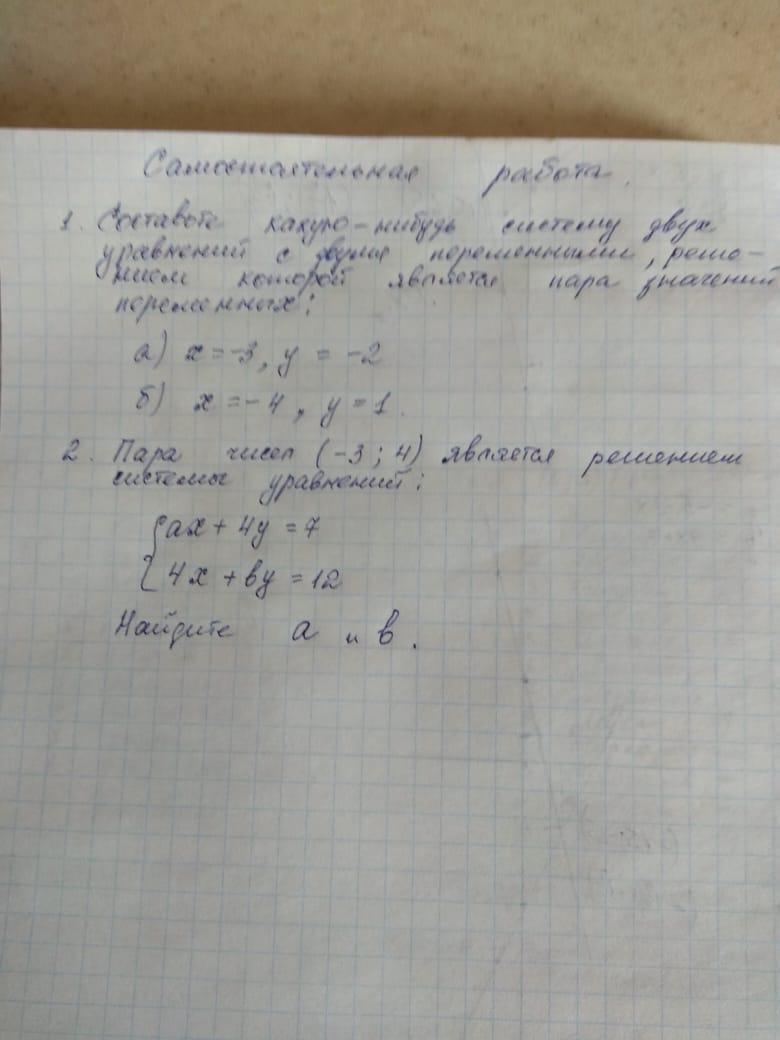 Самостоятельная работа.
1. Составьте какую-нибудь систему двух
уравнений с двумя переменными, реше-
нием которой является пара значений
переменных:
а) x = -3, y = -2
б) x = -4, y = 1.
2. Пара чисел (-3; 4) является решением
системы уравнений:
{ax + 4y = 7
4x + by = 12
Найдите a и b.